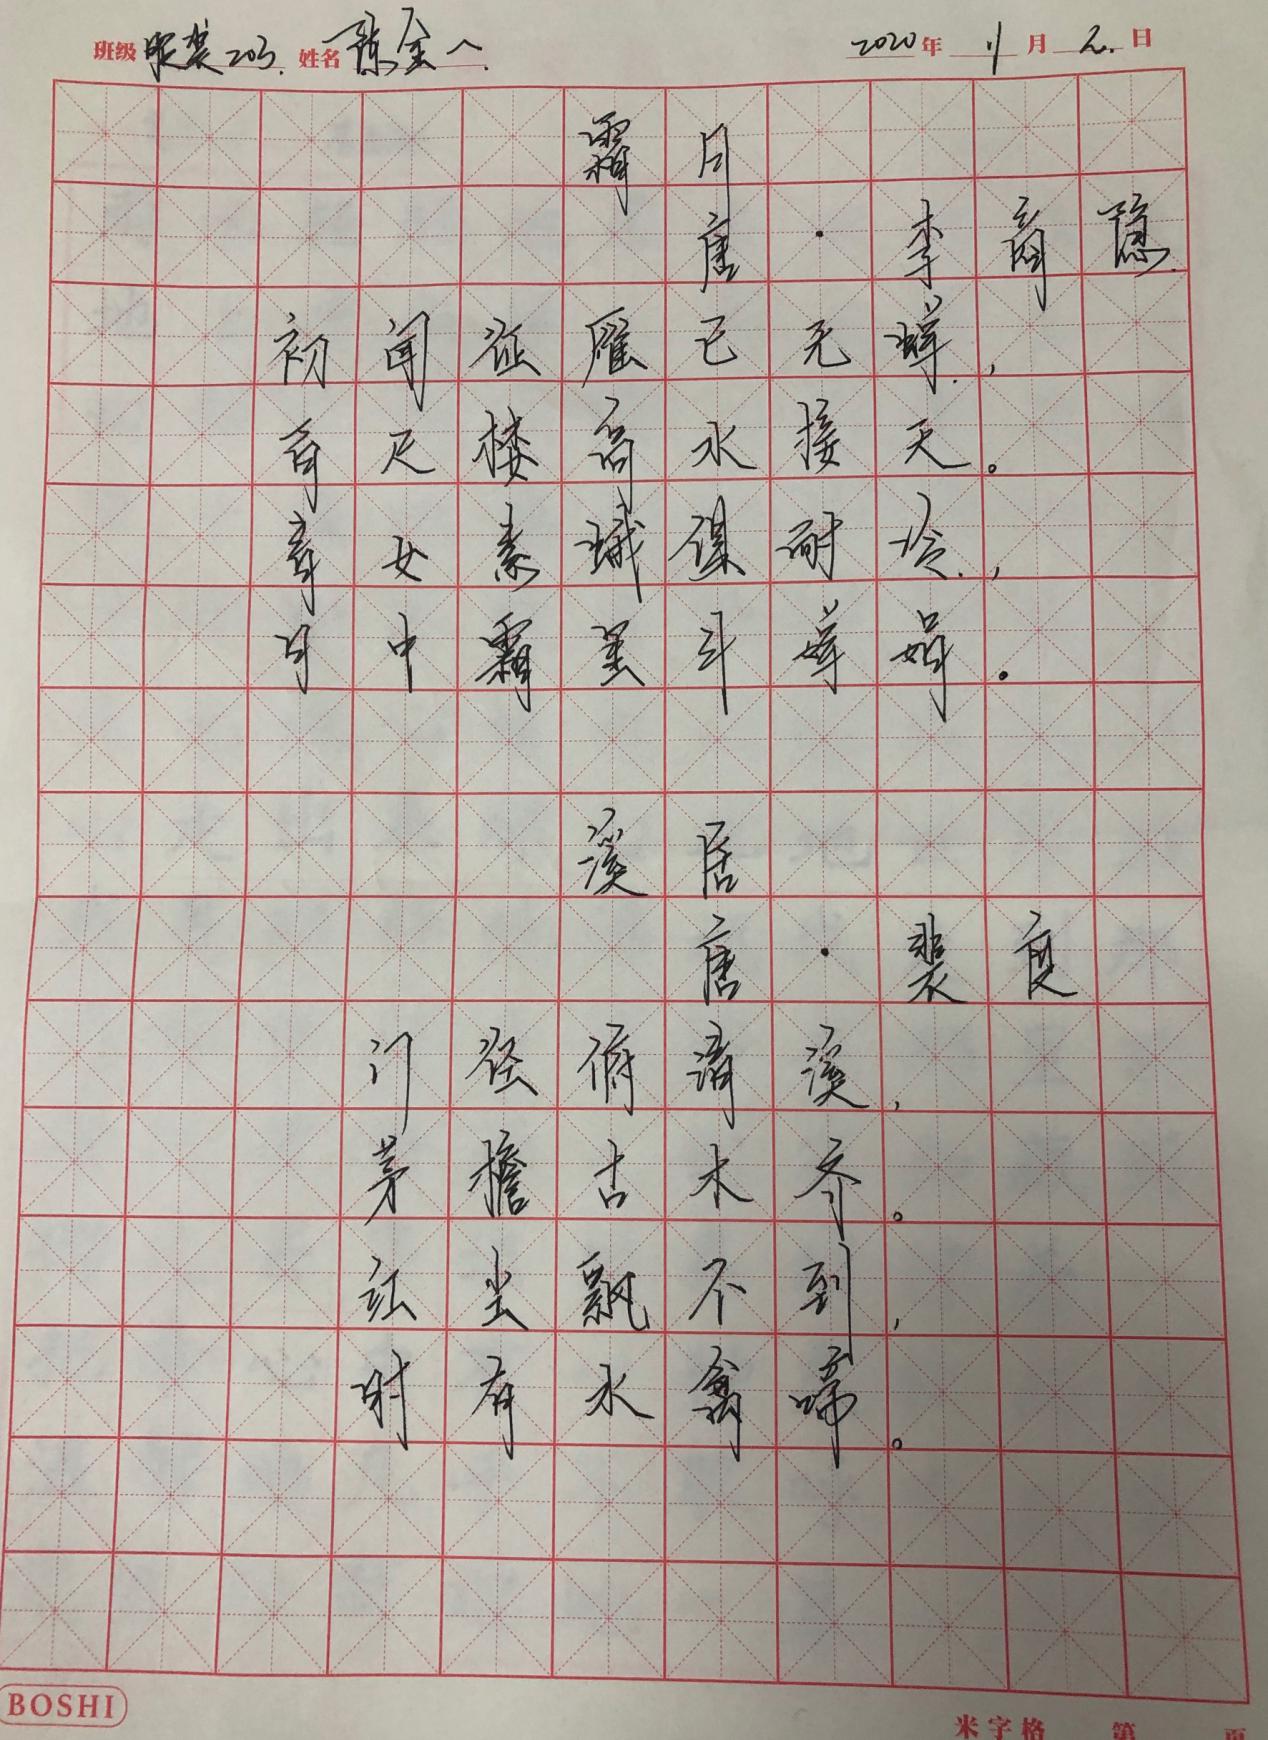 班级 服装203. 姓名 陈金 2020年 11月 2日
霜月
唐·李商隐
初闻征雁已无蝉,
百尺楼高水接天。
青女素娥俱耐冷,
月中霜里斗婵娟。
溪居
唐·裴度
门径俯清溪,
茅檐古木齐。
红尘飘不到,
时有水禽啼。
BOSHI 米字格 第 页